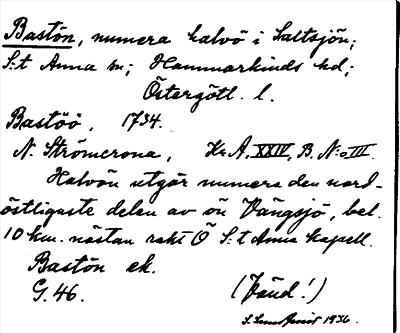 Bastön, numera halvö i Saltsjön;
S:t Anna sn; Hammarkinds hd;
Östergötl. l.
Bastöö, 1734.
N. Strömcrona, Kr. A, XXIV, B, N:o III.
Halvön utgör numera den nord-
östligaste delen av ön Vängsjö, bel.
10 km. nästan rakt Ö S:t Anna kapell.
Bastön ek.
G. 46. (Vänd!)
1936.